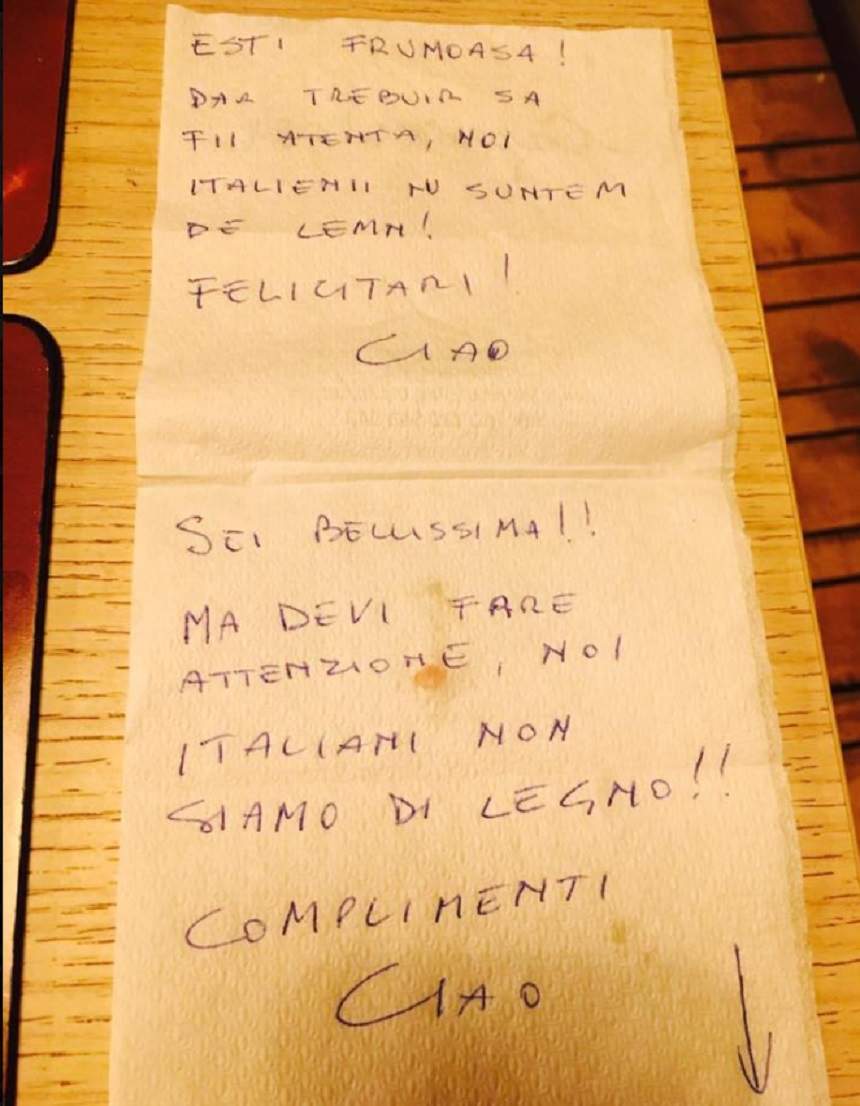 ESTI FRUMOASA!
DAR TREBUIR SA
FII ATENTA, NOI
ITALIENII NU SUNTEM
DE LEMN!
FELICITARI!
CIAO
SEI BELLISSIMA!!
MA DEVI FARE
ATTENZIONE, NOI
ITALIANI NON
SIAMO DI LEGNO!!
COMPLIMENTI
CIAO